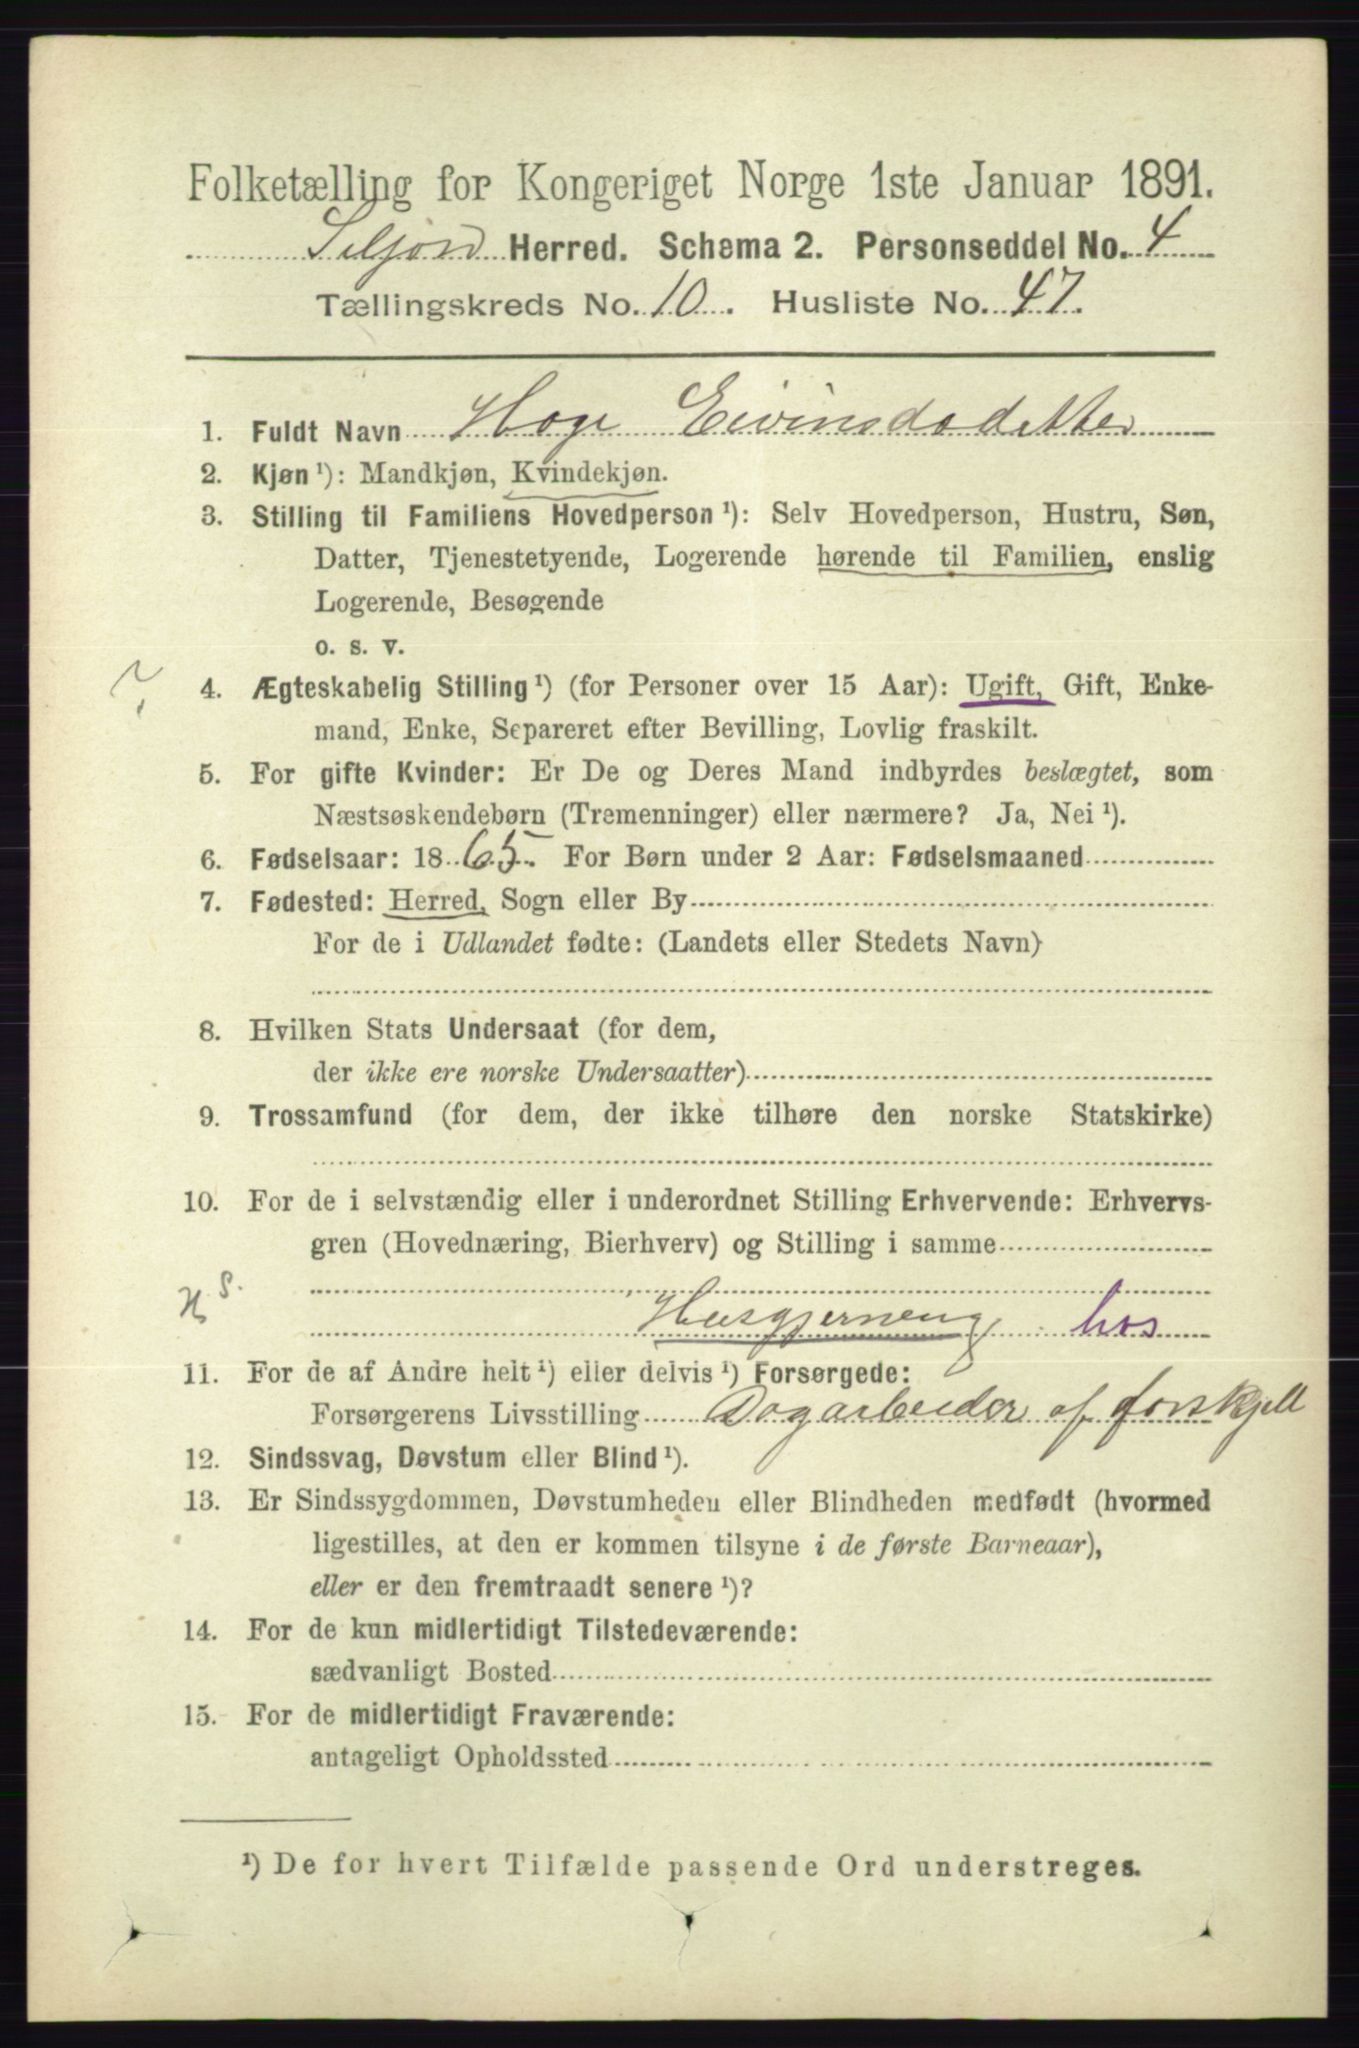 Folketælling for Kongeriget Norge 1ste Januar 1891.
Seljord Herred. Schema 2. Personseddel No. 4
Tællingskreds No. 10. Husliste No. 47.
1. Fuldt Navn Hoge Eivinsdodetter
2. Kjøn ¹): Mandkjøn, Kvindekjøn.
3. Stilling til Familiens Hovedperson ¹): Selv Hovedperson, Hustru, Søn,
Datter, Tjenestetyende, Logerende hørende til Familien, enslig
Logerende, Besøgende
o. s. v.
? 4. Ægteskabelig Stilling ¹) (for Personer over 15 Aar): Ugift, Gift, Enke-
mand, Enke, Separeret efter Bevilling, Lovlig fraskilt.
5. For gifte Kvinder: Er De og Deres Mand indbyrdes beslægtet, som
Næstsøskendebørn (Tremenninger) eller nærmere? Ja, Nei ¹).
6. Fødselsaar: 1865. For Børn under 2 Aar: Fødselsmaaned
7. Fødested: Herred, Sogn eller By
For de i Udlandet fødte: (Landets eller Stedets Navn)
8. Hvilken Stats Undersaat (for dem,
der ikke ere norske Undersaatter)
9. Trossamfund (for dem, der ikke tilhøre den norske Statskirke)
10. For de i selvstændig eller i underordnet Stilling Erhvervende: Erhvervs-
gren (Hovednæring, Bierhverv) og Stilling i samme
Husgjerneng hos
11. For de af Andre helt ¹) eller delvis ¹) Forsørgede:
Forsørgerens Livsstilling Dagarbeider af forskjell
12. Sindssvag, Døvstum eller Blind ¹).
13. Er Sindssygdommen, Døvstumheden eller Blindheden medfødt (hvormed
ligestilles, at den er kommen tilsyne i de første Barneaar),
eller er den fremtraadt senere ¹)?
14. For de kun midlertidigt Tilstedeværende:
sædvanligt Bosted
15. For de midlertidigt Fraværende:
antageligt Opholdssted
¹) De for hvert Tilfælde passende Ord understreges.